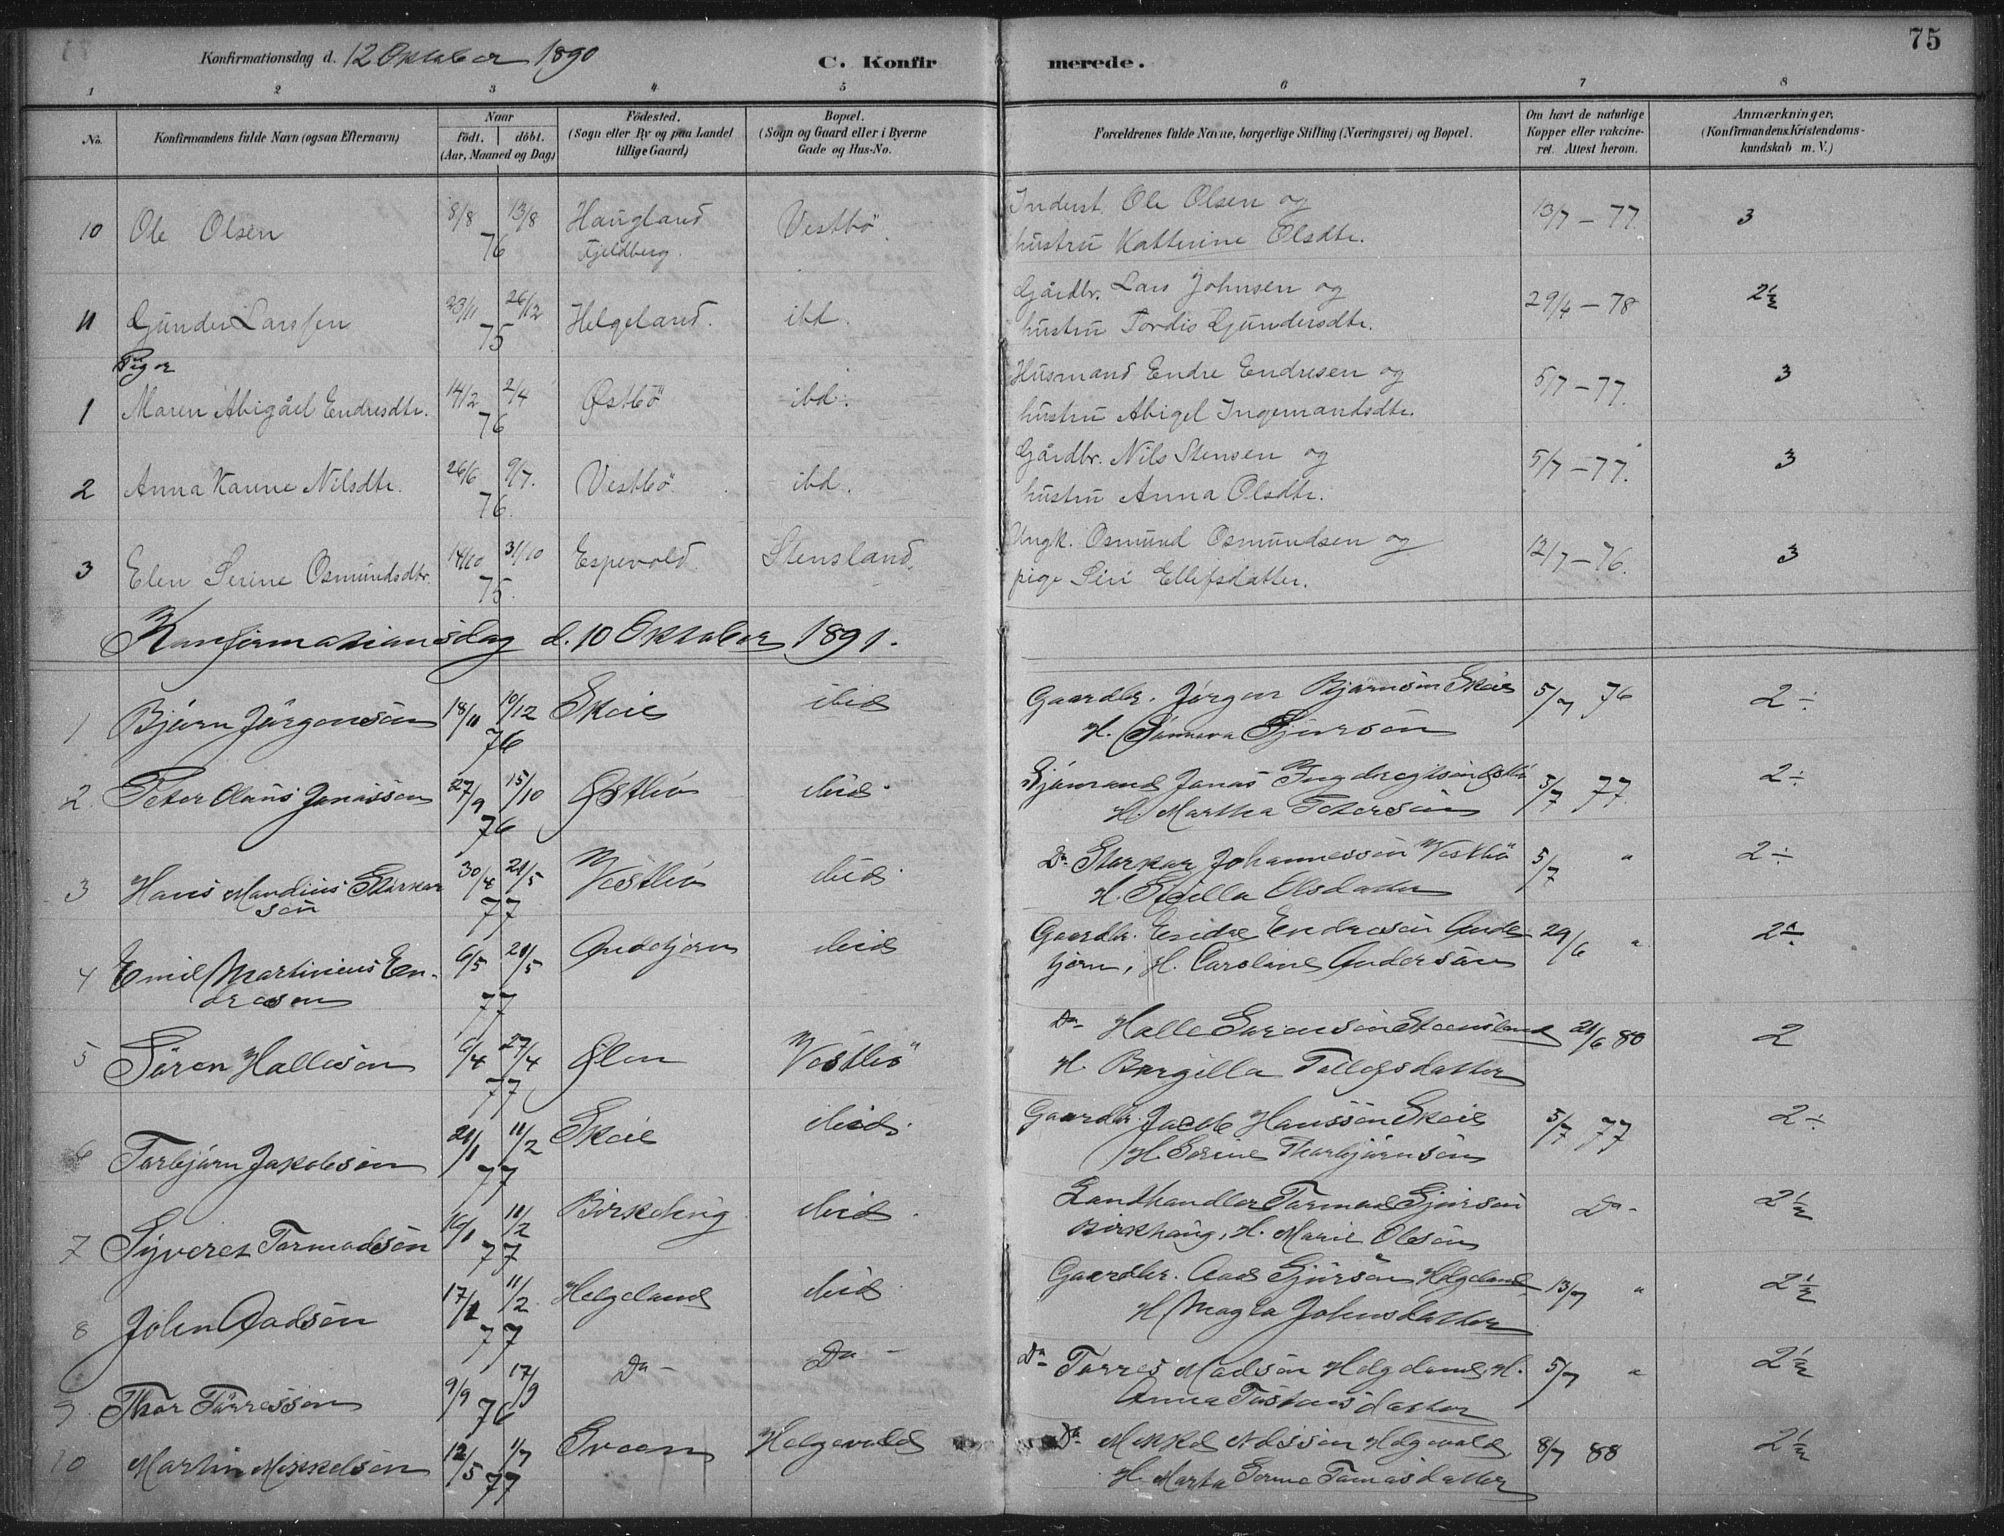 75
Konfirmationsdag d. 12 Oktober 1890
C. Konfirmerede.
1 2 3 4 5 6 7 8
No. Konfirmandens fulde Navn (ogsaa Efternavn) Naar födt. döbt. (Aar, Maaned og Dag) Födested. (Sogn eller By og paa Landet tillige Gaard) Bopæl. (Sogn og Gaard eller i Byerne Gade og Hus-No. Forældrenes fulde Navne, borgerlige Stilling (Næringsvei) og Bopæl. Om havt de naturlige Kopper eller vakcineret. Attest herom. Anmærkninger, (Konfirmandens Kristendomskundskab m. V.)
10 Ole Olsen 8/8 13/8 76 Haugland Fjeldberg. Vestbö. Inderst. Ole Olsen og hustru Katterine Olsdtr. 13/7 – 77 3
11 Gunder Larssen 23/11 26/12 75 Helgeland. ibd. Gårdbr. Lars Johnsen og hustru Tordis Gundersdtr. 29/4 – 78 2½
Piger
1 Maren Abigåel Endresdtr. 14/2 2/4 76 Østbö ibd. Husmand Endre Endresen og hustru Abigel Ingemandsdtr. 5/7 – 77. 3
2 Anna Karine Nilsdtr. 26/6 9/7. 76. Vestbö. ibd. Gårdbr. Nils Stensen og hustru Anna Olsdtr. 5/7 – 77. 3
3 Elen Serine Osmundsdtr. 14/10 31/10 75. Espevold. Stensland. Ungk. Osmund Osmundsen og pige Siri Ellefsdatter. 12/7 – 76. 3
Konfirmationsdag d. 10 Oktober 1891.
1 Bjørn Jørgensøn 18/11 10/12 76 Skeie ibid Gaardbr. Jørgen Bjørnsøn Skeie H. 5/7 76 2÷
2 Peter Olaus Jonassøn 27/9 15/10 76 Østbø ibid. Sjømand Jonas H. Martha Petersøn 5/7 77 2÷
3 Hans Mandius Størkersøn 30/4 21/5 77 Vestbø ibid. Do Størker Johannessøn Vestbø H. Olsdatter 5/7 " 2÷
4 Emil Martinius Endresøn 6/5 21/5 77 Ondbjørn ibid Gaardbr. Endre Endresøn H. Caroline Andersøn 29/6 " 2÷
5 Søren Hallesøn 6/4 27/4 77 Ølen Vestbø Do Halle Sørensøn Steensland H. Tollefsdatter 21/6 80 2
6 Torbjørn Jakobsøn 21/1 11/2 77 Skeie ibid. Gaardbr. Jacob Hanssøn Skeie H. Serine Thorbjørnsøn 5/7 77 2÷
7 Syvert Tormodsøn 10/1 11/2 77 ibid. Landhandler Tormod Sjursøn Birkhaug, H. Marie Olsøn Do 2½
8 John Aadsøn 17/1 11/2 77 Helgeland ibid. Gaardbr. Aad Sjursøn Helgeland H Magla Johnsdatter 13/7 " 2½
9 Thor Tørressøn 9/9 17/9 76 Do Do Do Tørres Madsøn Helgeland, H. Anna Tostensdatter 5/7 " 2½
10 Martin Mikkelsøn 12/5 1/7 77 Sveen Helgevold Do Mikkel Nilssøn Helgevold H. Marta Serine Tomasdatter 8/7 88 2½